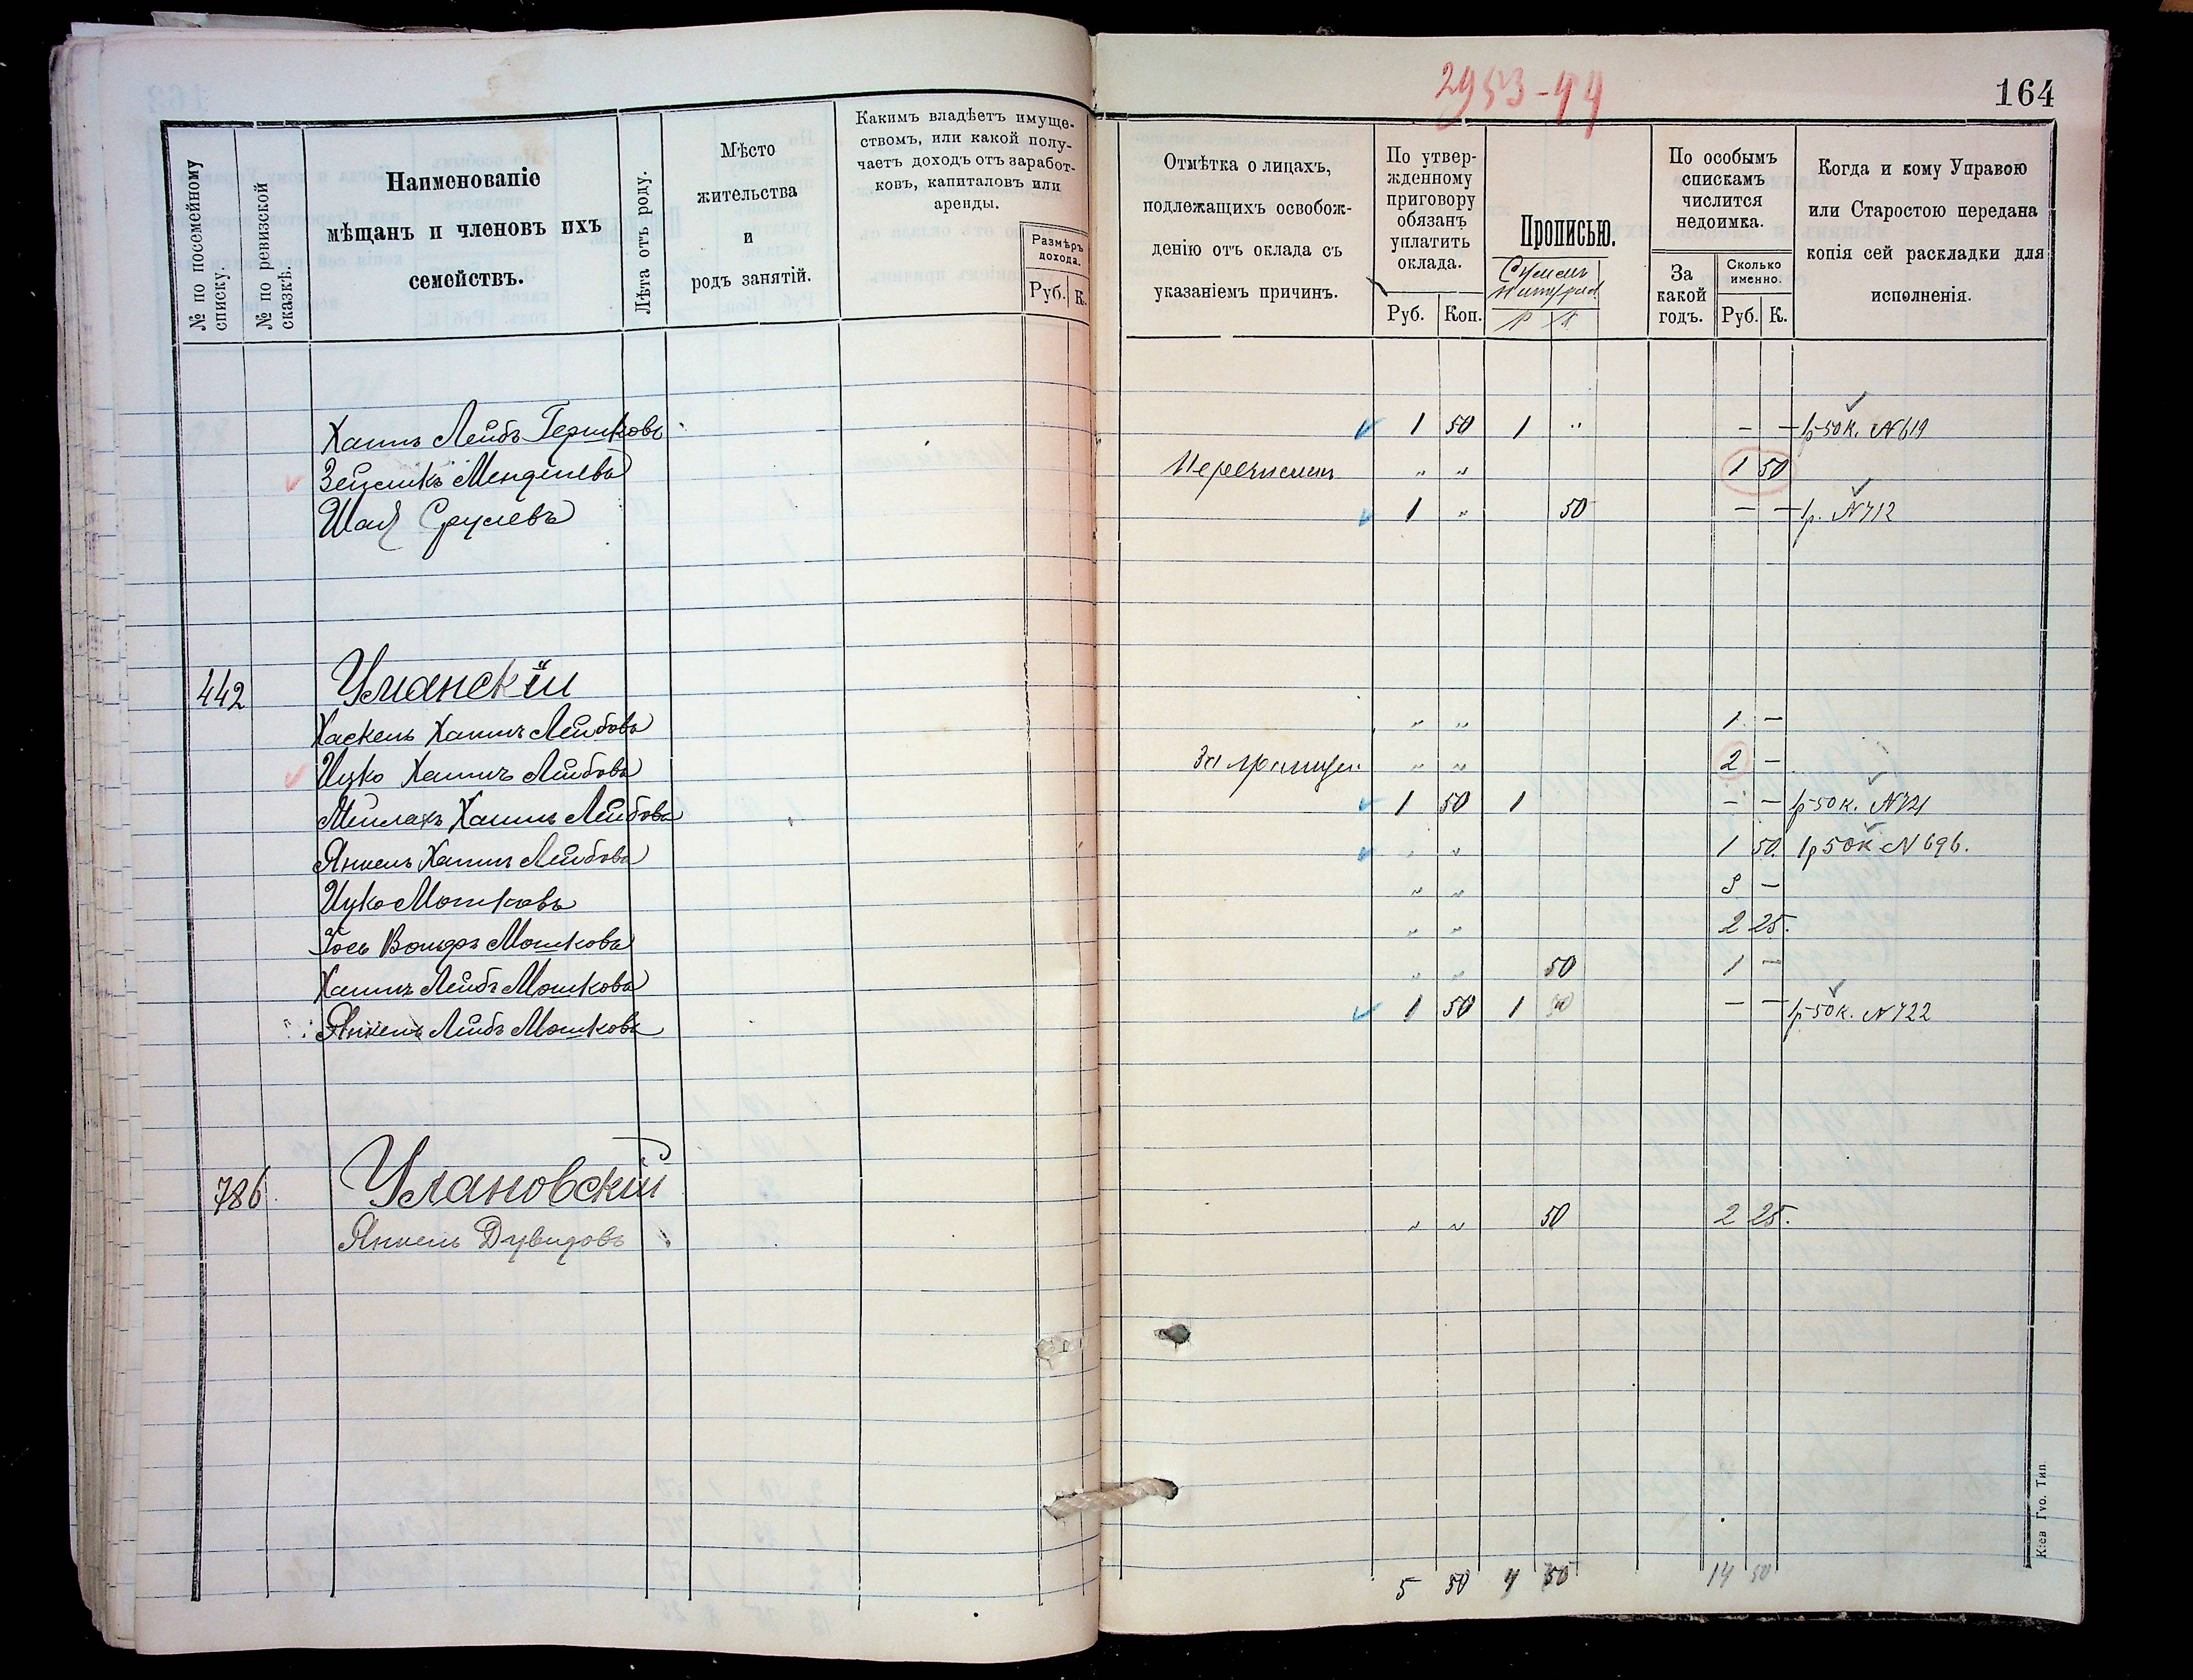 2953-44
164
№ по посемейному списку.
№ по ревизской сказкѣ.
Наименованіе
мѣщанъ и членовъ ихъ
семействъ.
Лѣта отъ роду.
Мѣсто
жительства
и
родъ занятій.
Какимъ владѣетъ имуще-
ствомъ, или какой полу-
чаетъ доходъ отъ заработ-
ковъ, капиталовъ или
аренды.
Размѣръ
дохода.
Руб. К.
Отмѣтка о лицахъ,
подлежащихъ освобож-
денію отъ оклада съ
указаніемъ причинъ.
По утвер-
жденному
приговору
обязанъ
уплатить
оклада.
Руб. Коп.
Прописью.
Р К
По особымъ
спискамъ
числится
недоимка.
За
какой
годъ.
Сколько
именно.
Руб. К.
Когда и кому Управою
или Старостою передана
копія сей раскладки для
исполненія.
Хаимъ Лейбъ Гершковъ 1 50 1 „ — — 1р 50к. №619
Зейликъ Менделевъ Перечисленъ „ „ 1 50
Шая Срулевъ 1 „ 50 — — 1р. №712
442 Уманскій
Хаскель Хаимъ Лейбовъ „ „ 1 —
Ицко Хаимъ Лейбовъ За границей „ „ 2 —
Мейлахъ Хаимъ Лейбовъ 1 50 1 — — 1р 50к. №721
Янкель Хаимъ Лейбовъ „ „ 1 50. 1р 50к №696.
Ицко Мошковъ „ „ 3 —
Іось Вольфъ Мошковъ „ „ 2 25.
Хаимъ Лейбъ Мошковъ „ „ 50 1 —
Янкель Лейбъ Мошковъ 1 50 1 50 — — 1р 50к. №722
786 Улановскій
Янкель Дувидовъ „ „ 50 2 25.
5 50 4 50 14 50
Кіев Губ. Тип.